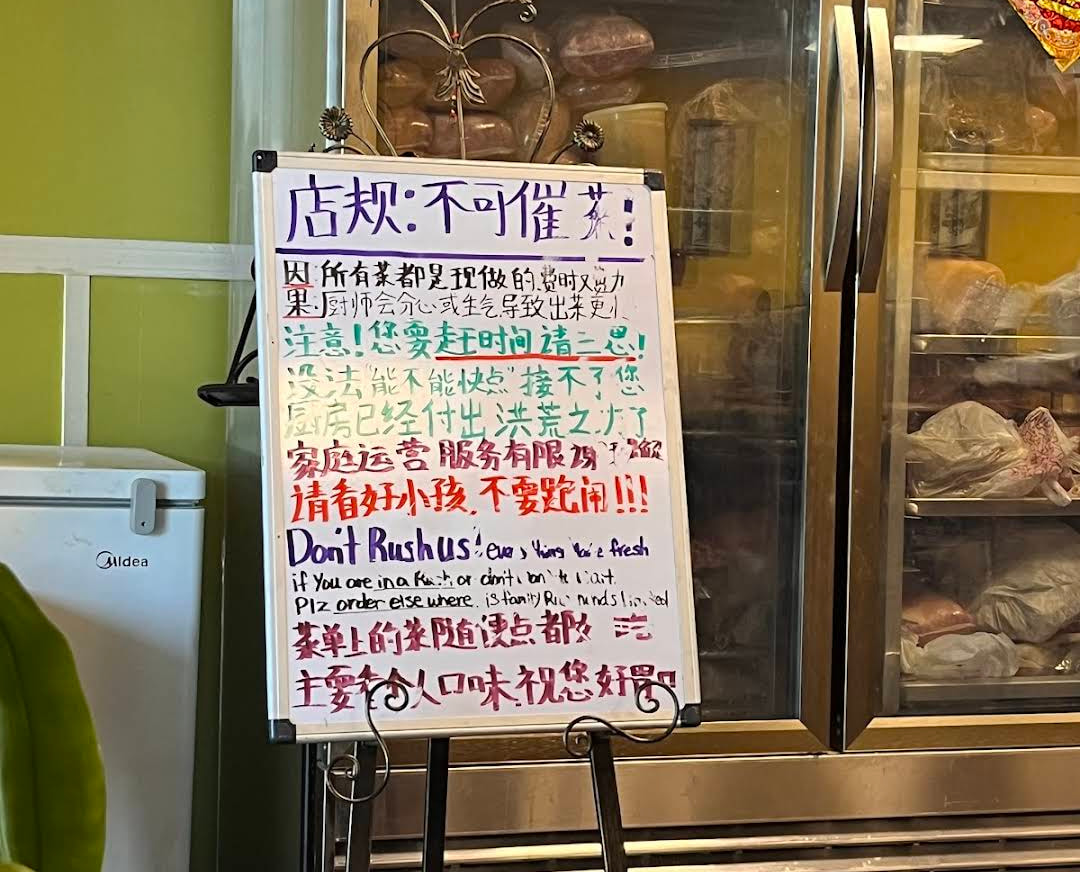 店规:不可催菜!
因:所有菜都是现做的.费时又费力
果:厨师会分心或生气.导致出菜更
注意!您要赶时间请三思!
没法"能不能快点"接不了您
厨房已经付出洪荒之力了
家庭运营服务有限
请看好小孩.不要跑闹!!!
Don't Rush us! fresh
if You are in a Rush or don't
Plz order else where. is family
菜单上的菜随便点都好吃
主要看个人口味.祝您好胃口
Midea